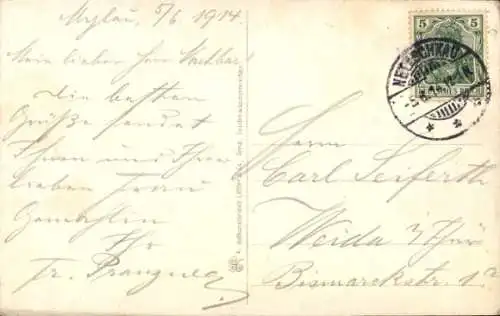 Mylau, 5/6 1914.
Mein lieber Herr Nachbar!
Die besten
Grüße sendet
Ihnen und Ihrer
lieben Frau
Gemahlin
Ihr
Fr.
5 5
NETZSCHKAU
Herrn
Carl Seiferth
Weida i/Thür
Bismarckstr.